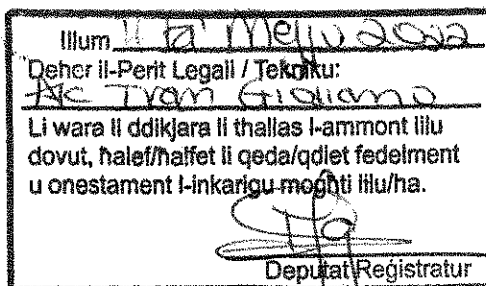 Illum 11 ta' Mejju 2022
Deher il-Perit Legali / Tekniku:
AIC Ivan Gioliano
Li wara li ddikjara li thallas l-ammont lilu
dovut, ħalef/ħalfet li qeda/qdiet fedelment
u onestament l-inkarigu mogħti lilu/ha.
Deputat Reġistratur